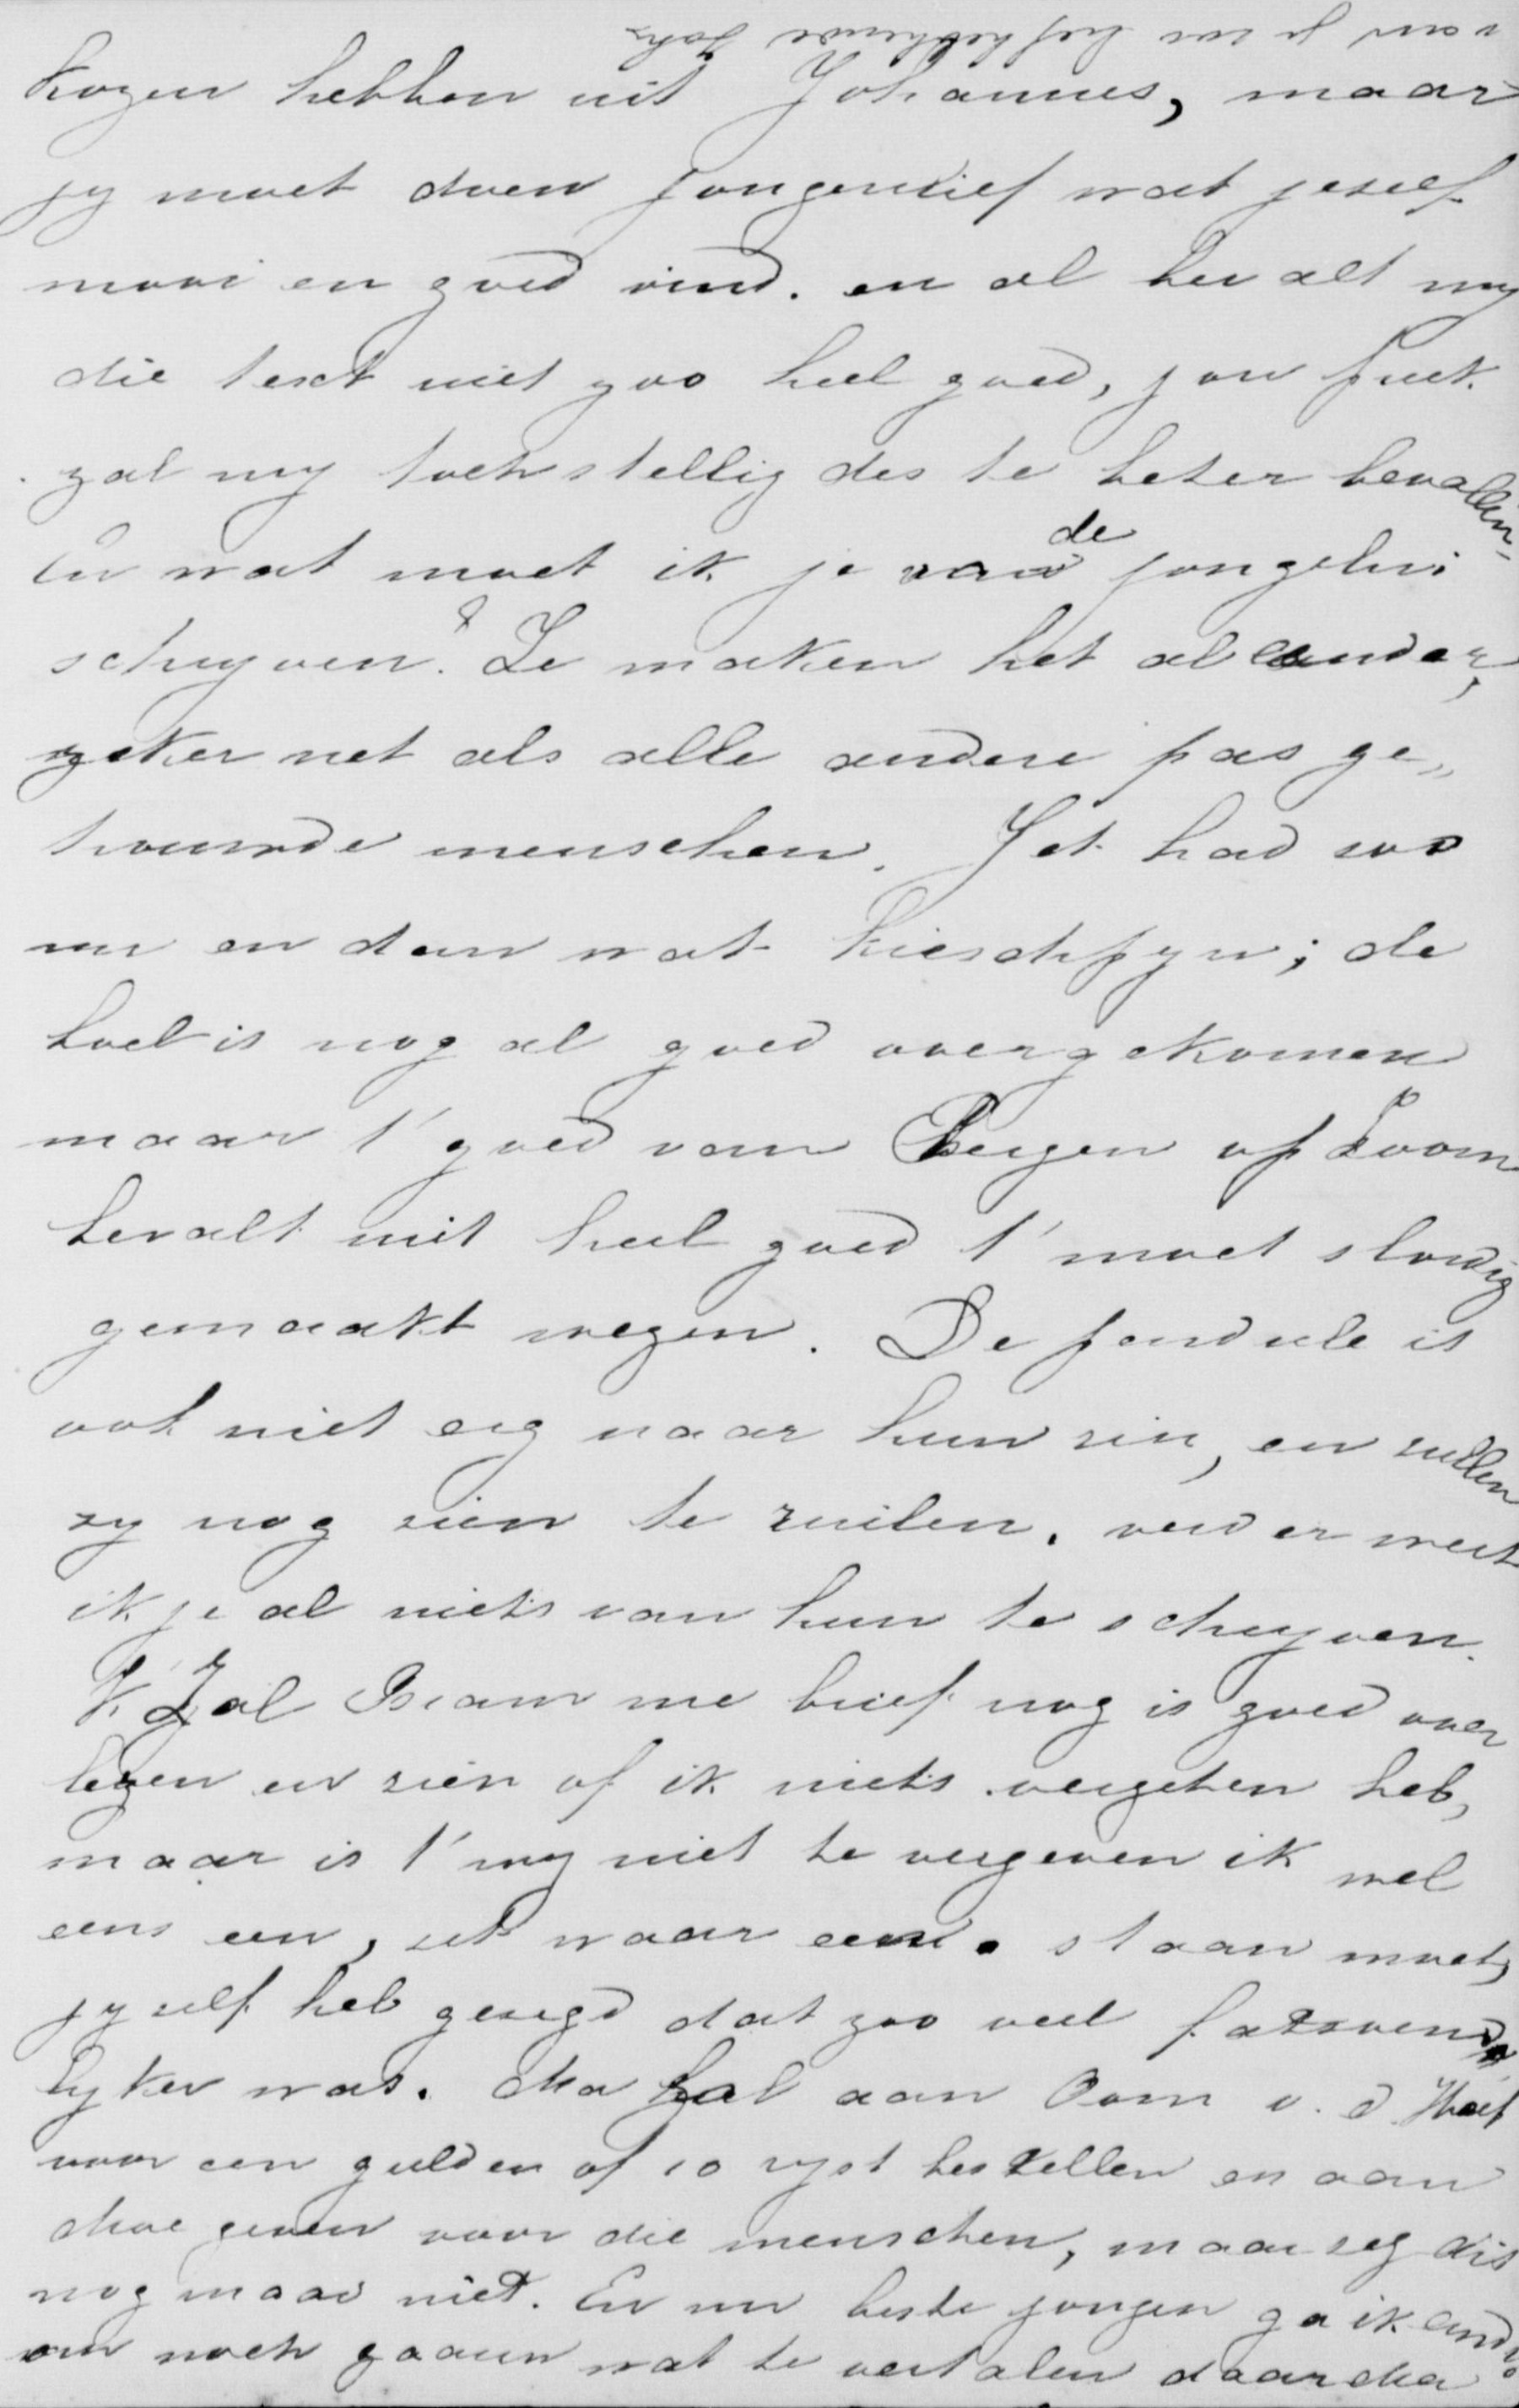 van je zoo liefhebbende Joh.
kozen hebben uit Johannes, maar
jy moet doen jongenlief wat jeself
mooi en goed vind. en al bevalt my
die text niet zoo heel goed, jou preek
zal my toch stellig des te beter bevallen,
En wat moet ik je van de jongelui
schryven? Ze maken het al eander,
zeker net als alle andere pas ge„
trouwde menschen. Jet had soo
nu en dan wat kieschpyn; de
boel is nog al goed overgekomen
maar t' goed van Bergen op Zoom
bevalt niet heel goed t' moet slordig
gemaakt wezen. De pendule is
ook niet erg naar hun sin, en sullen
sy nog sien te ruilen. verder weet
ik je al niets van hun te schryven.
k' Zal Bram me brief nog is goed over
lezen en sien of ik niets vergeten heb,
maar is t' my niet te vergeven ik wel
eens een, set waar een . staan moet,
jy self heb gesegd dat zoo veel fatsoend
lyker was. Ma zal aan Oom v. d. Hoef
voor een gulden of 10 ryst bestellen en aan
Moe geven voor die menschen, maar seg dit
nog maar niet. En nu beste jongen ga ik
om noch gaaun wat te vertalen daar Ma